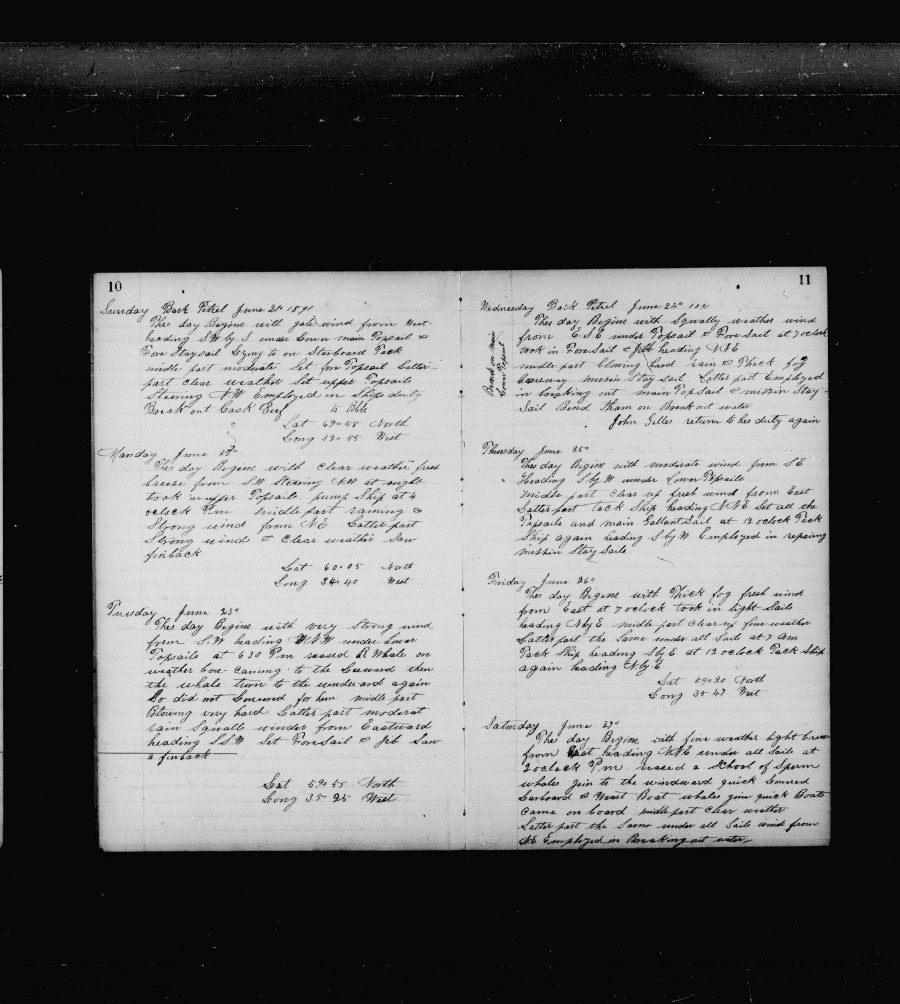 10
Sunday Bark Petrel June 21st 1891
Thes day Begins with gale wind from West
heading SW by S under Lower main Topsail &
Fore Staysail Lying to on Starboard Tack
midle part moderate Set fore Topsail Latter
part clear weather Set upper Topsails
Steering NW Employed in Ships duty
Break out Cask Beef 15 Bbls
Lat 59-58 North
Long 33-55 West
Monday June 22d
Thes day Begins with clear weather fresh
breeze from SW Steering NW at night
took in upper Topsails pump Ship at 4
oclock Pm midle part raining &
Strong wind from NE Latter part
Strong wind & clear weather Saw
finback
Lat 60-05 North
Long 34-40 West
Tuesday June 23d
Thes day Begins with very Strong wind
from S.W heading WNW under Lower
Topsails at 630 Pm raised R Whale on
weather bow caming to the Leeward then
the whale turn to the windward again
So did not Lowered for him midle part
Blowing very hard Latter part moderat
rain Squalls winder from Eastward
heading SSW Set ForeSail & Jib Saw
a finback
Lat 59-55 North
Long 35-25 West
11
Wednesday Bark Petrel June 24th 189
Thes day Begins with Squally weather wind
from ESE under Topsail & ForeSail at 7 oclock
took in ForeSail & Jib heading NNE
midle part blowing hard rain & Thick fog
carreway mizzin Stay Sail Latter part Employed
in breaking out main TopSail & mizzin Stay
Sail Bend tham on Break out water
John Gilles return to hes duty again
Bend on Main
Lower Topsail
Thursday June 25th
Thes day Begins with moderate wind from SE
Heading S by W under Lower Topsails
midle part clear up fresh wind from East
Latter part tack Ship heading NNE Set all the
Topsails and main GallantSail at 12 oclock Tack
Ship again heading S by W Employed in repairing
mizzin Stay Sails
Friday June 26th
Thes day Begins with Thick fog fresh wind
from East at 7 oclock took in light Sails
heading N by E midle part clear up fine weather
Latter part the Same under all Sails at 7 am
Tack Ship heading S by E at 12 oclock Tack Ship
again heading N by E
Lat 59-20 North
Long 35-47 West
Saturday June 27th
Thes day Begins with fine weather light breeze
from East heading NNE under all Sails at
2 oclock P.m. raised a School of Sperm
whales goin to the windward quick Lowered
Larboard & Waist Boat whales goin quick Boats
came on board midle part clear weather
Latter part the Same under all Sails wind from
NE Employed in Breaking out water